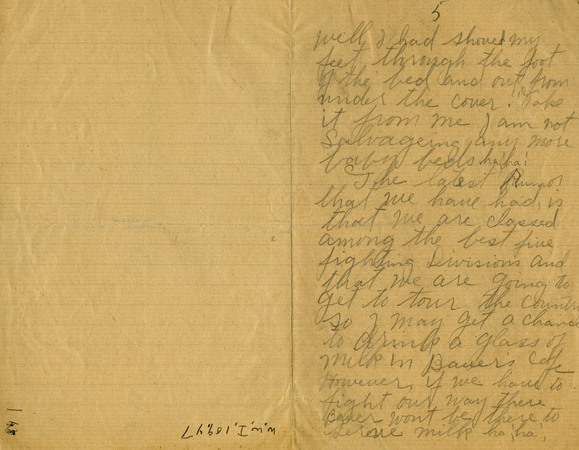 5
well I had shoved my
feet through the foot
of the bed and out from
under the cover. Take
it from me I am not
Salvageing any more
baby beds ha! ha!
The latest Rumor
that we have had, is
that we are classed
among the best five
fighting divisions and
that we are going to
get to tour the country
So I may get a chance
to drink a glass of
milk in Bauer's Cafe
However, if we have to
fight our way there
Bauer wont be there to
serve milk ha! ha!
W.W.I, 1